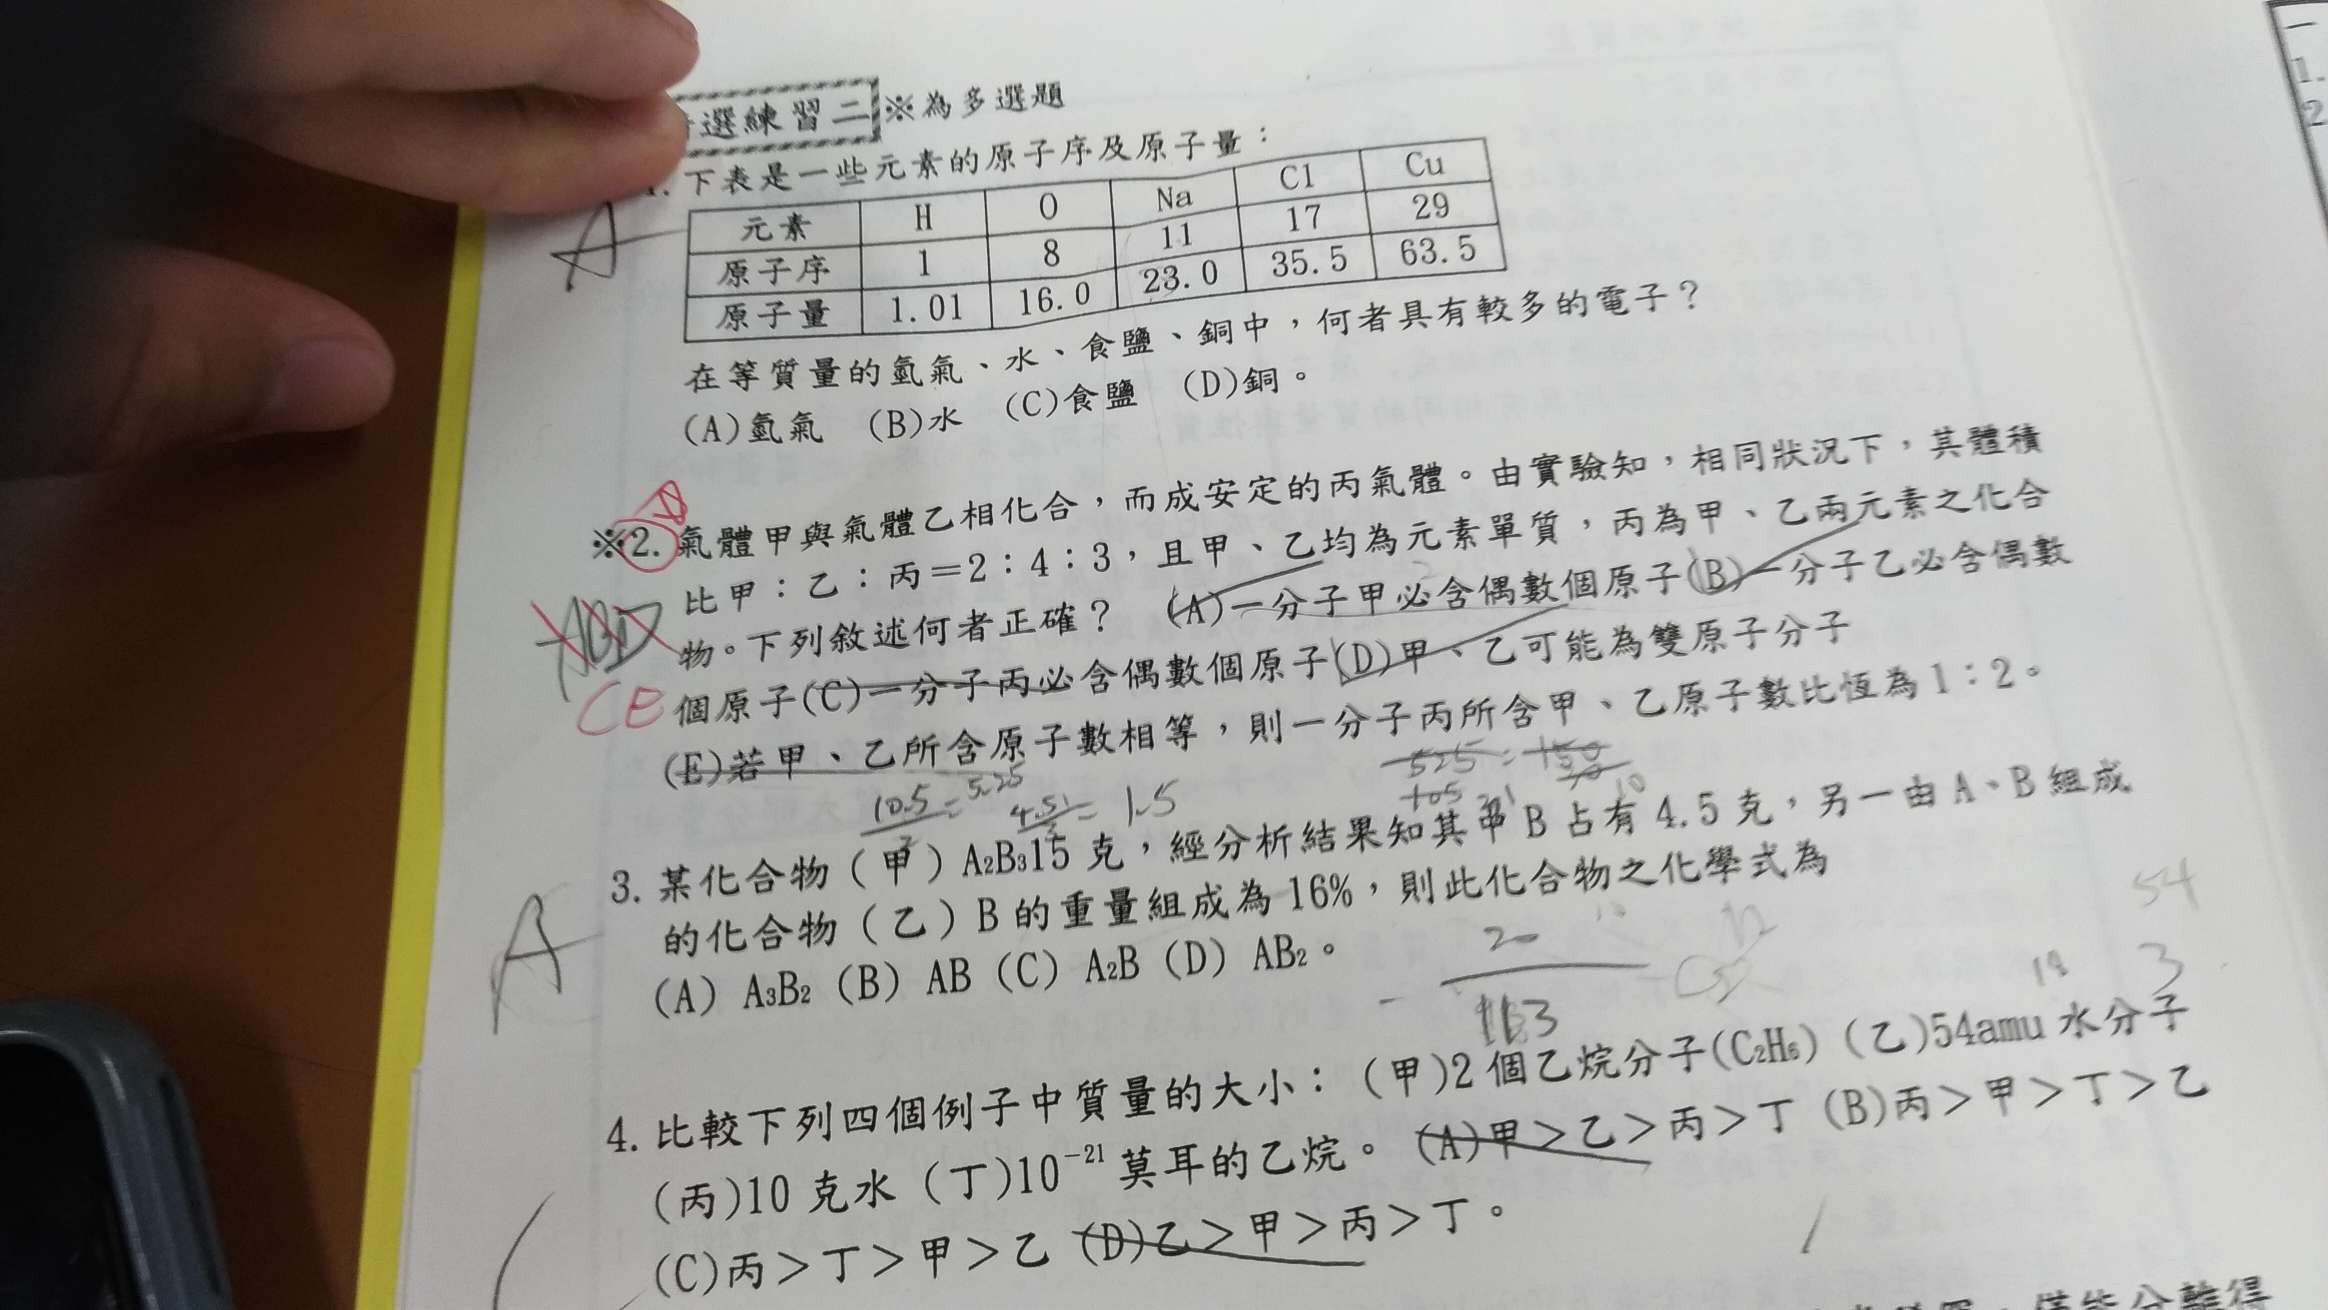 選練習二 ※為多選題
1. 下表是一些元素的原子序及原子量：
元素 H O Na Cl Cu
原子序 1 8 11 17 29
原子量 1.01 16.0 23.0 35.5 63.5
在等質量的氫氣、水、食鹽、銅中，何者具有較多的電子？
(A)氫氣 (B)水 (C)食鹽 (D)銅。
A
※2. 氣體甲與氣體乙相化合，而成安定的丙氣體。由實驗知，相同狀況下，其體積
比甲：乙：丙＝2：4：3，且甲、乙均為元素單質，丙為甲、乙兩元素之化合
物。下列敘述何者正確？ (A)一分子甲必含偶數個原子(B)一分子乙必含偶數
個原子(C)一分子丙必含偶數個原子(D)甲、乙可能為雙原子分子
(E)若甲、乙所含原子數相等，則一分子丙所含甲、乙原子數比恆為1：2。
ABD
CE
10.5/2=5.25 4.5/3=1.5
3. 某化合物（甲）A₂B₃15 克，經分析結果知其中 B 占有 4.5 克，另一由 A、B 組成
的化合物（乙）B 的重量組成為 16%，則此化合物之化學式為
(A) A₃B₂ (B) AB (C) A₂B (D) AB₂。
A
54
18 3
4. 比較下列四個例子中質量的大小：(甲)2 個乙烷分子(C₂H₆) (乙)54amu 水分子
(丙)10 克水 (丁)10⁻²¹ 莫耳的乙烷。 (A)甲＞乙＞丙＞丁 (B)丙＞甲＞丁＞乙
(C)丙＞丁＞甲＞乙 (D)乙＞甲＞丙＞丁。
一
1.
2